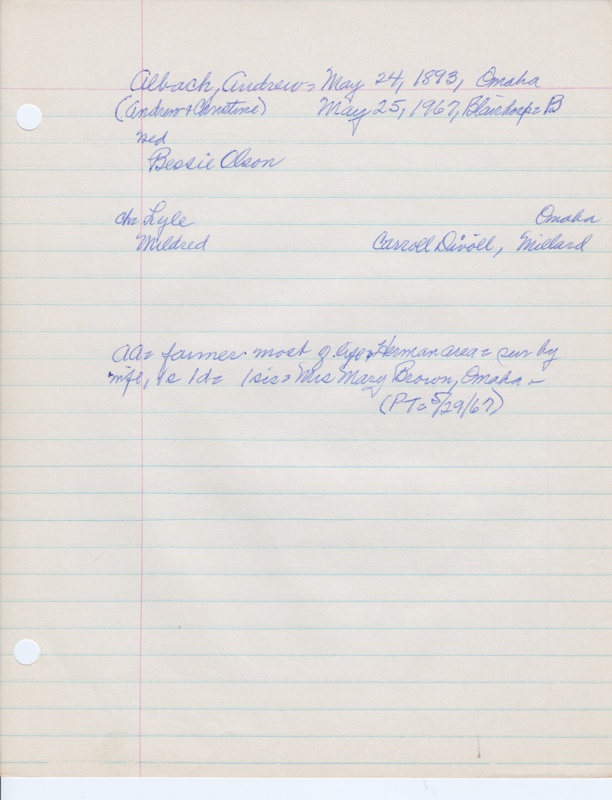 Albach, Andrew = May 24, 1893, Omaha
(Andrew + Christine) May 25, 1967, Blair hosp = B
wed
Bessie Olson
ch = Lyle Omaha
Mildred Carroll Divoll, Millard
AA = farmer most of life Herman area = sur by
wife, 1s 1d = 1 sis = Mrs Mary Brown, Omaha -
(PT = 5/29/67)